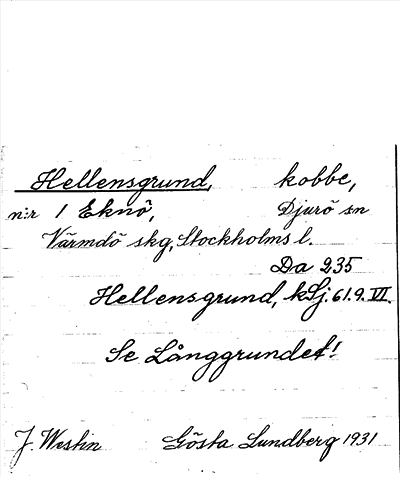 Hellensgrund, kobbe,
n:r 1 Eknö, Djurö sn
Värmdö skg, Stockholms l.
Da 235
Hellensgrund, kSj. 61.9. VII.
Se Långgrundet!
J. Westin Gösta Lundberg 1931